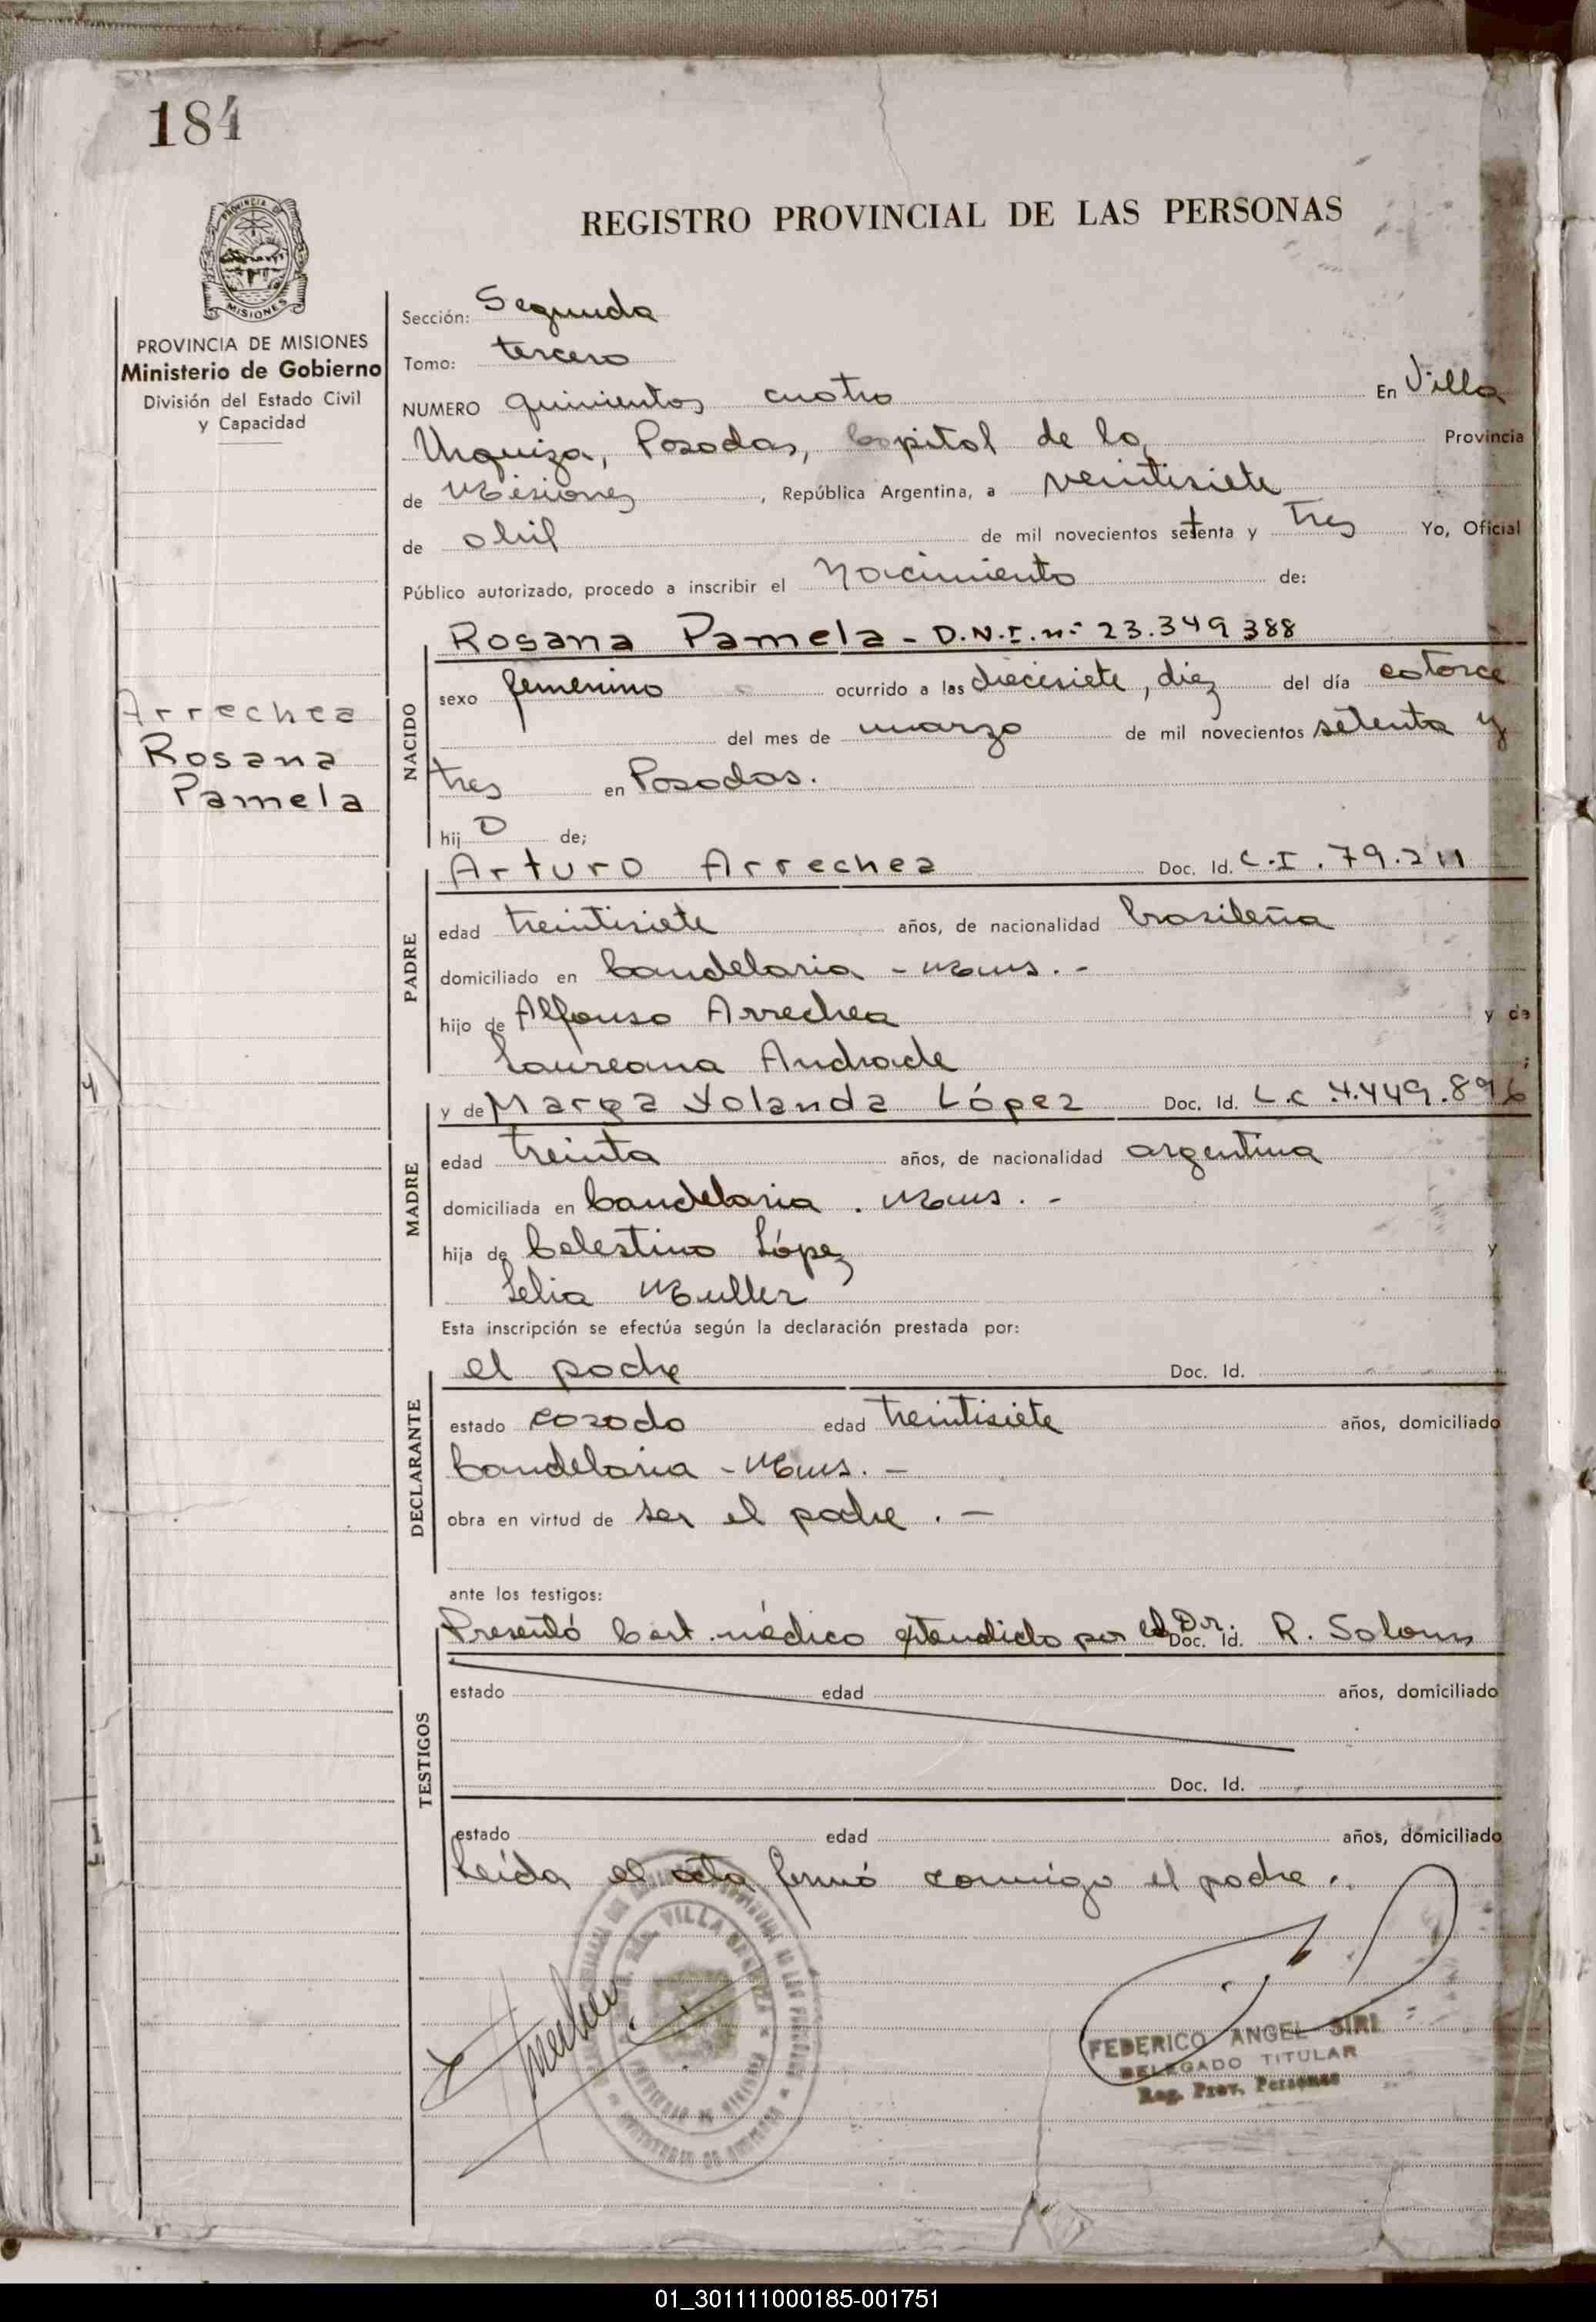 184
PROVINCIA DE
MISIONES
PROVINCIA DE MISIONES
Ministerio de Gobierno
División del Estado Civil
y Capacidad
Arrechea
Rosana
Pamela
REGISTRO PROVINCIAL DE LAS PERSONAS
Sección: Segunda
Tomo: tercero
NUMERO quinientos cuatro En Villa
Urquiza, Posadas, Capital de la Provincia
de Misiones, República Argentina, a veintisiete
de abril de mil novecientos setenta y tres Yo, Oficial
Público autorizado, procedo a inscribir el Nacimiento de:
NACIDO
Rosana Pamela - D.N.I. nº 23.349388
sexo femenino ocurrido a las diecisiete, diez del día catorce
del mes de marzo de mil novecientos setenta y
tres en Posadas.
hij a de;
PADRE
Arturo Arrechea Doc. Id. C.I. 79.211
edad treintisiete años, de nacionalidad brasileña
domiciliado en Candelaria - Mnes. -
hijo de Alfonso Arrechea y de
Laureana Andrade
MADRE
y de Marga Yolanda López Doc. Id. L.C 4.449.896
edad treinta años, de nacionalidad argentina
domiciliada en Candelaria. Mnes. -
hija de Celestino López y
Lelia Muller
Esta inscripción se efectúa según la declaración prestada por:
DECLARANTE
el padre Doc. Id.
estado casado edad treintisiete años, domiciliado
Candelaria - Mnes. -
obra en virtud de ser el padre. -
ante los testigos:
TESTIGOS
Presentó Cert. médico extendido por el Dr. Doc. Id. R.
estado edad años, domiciliado
Doc. Id.
estado edad años, domiciliado
Leída el acta firmó conmigo el padre.
Arrechea
VILLA URQUIZA
FEDERICO ANGEL SIRI
DELEGADO TITULAR
Reg. Prov. Personas
01_301111000185-001751